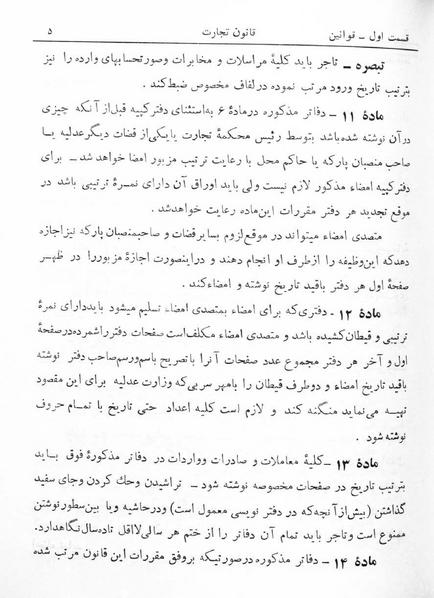 قسمت اول ـ قوانین قانون تجارت ۵
تبصره ـ تاجر باید کلیهٔ مراسلات و مخابرات وصورتحسابهای وارده را نیز
بترتیب تاریخ ورود مرتب نموده درلفاف مخصوص ضبط‌کند.
مادهٔ ۱۱ ـ دفاتر مذکوره درمادهٔ ۶ به‌استثنای دفترکپیه قبل‌از آنکه چیزی
درآن نوشته شده‌باشد بتوسط رئیس محکمهٔ تجارت یایکی‌از قضات دیگرعدلیه یا
صاحب منصبان پارکه یا حاکم محل با رعایت ترتیب مزبور امضا خواهدشد ـ برای
دفترکپیه امضاء مذکور لازم نیست ولی باید اوراق آن دارای نمرهٔ ترتیبی باشد در
موقع تجدید هر دفتر مقررات این‌ماده رعایت خواهدشد.
متصدی امضاء میتواند در موقع‌لزوم بسایرقضات و صاحبمنصبان پارکه نیزاجازه
دهدکه این‌وظیفه را ازطرف او انجام دهند و دراینصورت اجازهٔ مزبوررا در ظهر
صفحهٔ اول هر دفتر باقید تاریخ نوشته و امضاءکند.
مادهٔ ۱۲ ـ دفتری‌که برای امضاء بمتصدی امضاء تسلیم میشود بایددارای نمرهٔ
ترتیبی و قیطان‌کشیده باشد و متصدی امضاء مکلف‌است صفحات دفتر راشمرده‌درصفحهٔ
اول و آخر هر دفتر مجموع عدد صفحات آنرا باتصریح باسم‌ورسم‌صاحب دفتر نوشته
باقید تاریخ امضاء و دوطرف قیطان را بامهر سربی‌که وزارت عدلیه برای این مقصود
تهیه می‌نماید منگنه کند و لازم است کلیه اعداد حتی تاریخ با تمام حروف
نوشته شود .
مادهٔ ۱۳ ـ کلیهٔ معاملات و صادرات وواردات در دفاتر مذکورهٔ فوق باید
بترتیب تاریخ در صفحات مخصوصه نوشته شود ـ تراشیدن وحك کردن وجای سفید
گذاشتن (بیش‌از آنچه‌که در دفتر نویسی معمول است) ودرحاشیه ویا بین‌سطورنوشتن
ممنوع است وتاجر باید تمام آن دفاتر را از ختم هر سالی‌لااقل تاده‌سال نگاهدارد.
مادهٔ ۱۴ ـ دفاتر مذکوره درصورتیکه بروفق مقررات این قانون مرتب شده